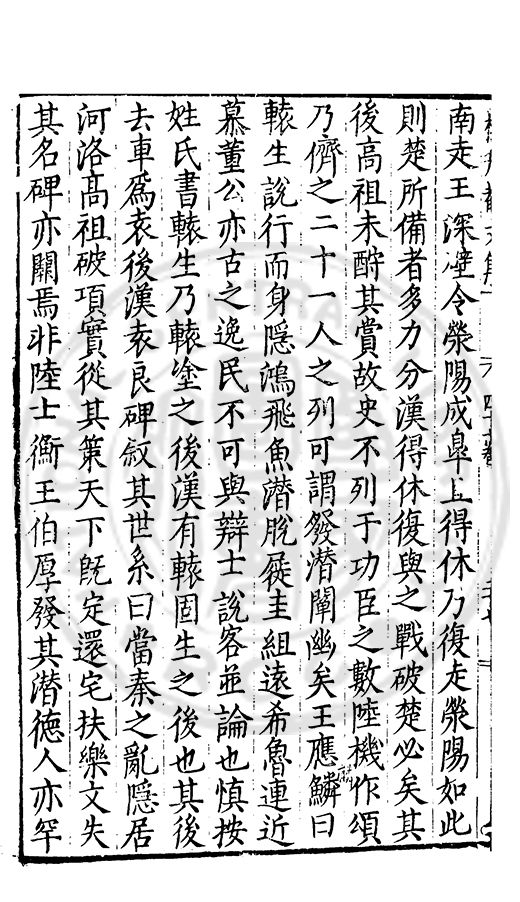 南走王深壁令滎陽成臯且得休乃復走滎陽如此
則楚所備者多力分漢得休復與之戰破楚必矣其
後高祖未酧其賞故史不列于功臣之數陸機作頌
乃儕之二十一人之列可謂發潛闡幽矣王應麟曰
轅生說行而身隱鴻飛魚潛脫屣圭組遠希魯連近
慕董公亦古之逸民不可與辯士說客並論也慎按
姓氏書轅生乃轅塗之後漢有轅固生之後也其後
去車爲袁後漢袁良碑敘其世系曰當秦之亂隱居
河洛高祖破項實從其策天下旣定還宅扶樂文失
其名碑亦闕焉非陸士衡王伯厚發其潛德人亦罕